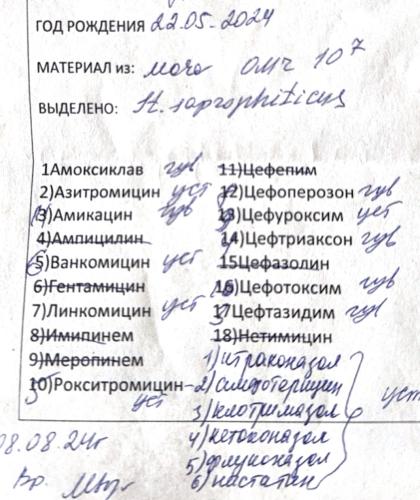 ГОД РОЖДЕНИЯ 22.05-2024
МАТЕРИАЛ из: моча ОМЧ 10^7
ВЫДЕЛЕНО: St. saprophiticus
1Амоксиклав чув
2)Азитромицин уст
3)Амикацин чув
4)Ампицилин
5)Ванкомицин уст
6)Гентамицин
7)Линкомицин уст
8)Имипинем
9)Меропинем
10)Рокситромицин уст
11)Цефепим
12)Цефоперозон чув
13)Цефуроксим уст
14)Цефтриаксон чув
15Цефазолин
16)Цефотоксим чув
17)Цефтазидим чув
18)Нетимицин
1) итраконазол
2)
3) клотримазол
4) кетоконазол
5) флуконазол
6) нистатин
уст
08.08.24г
Вр.